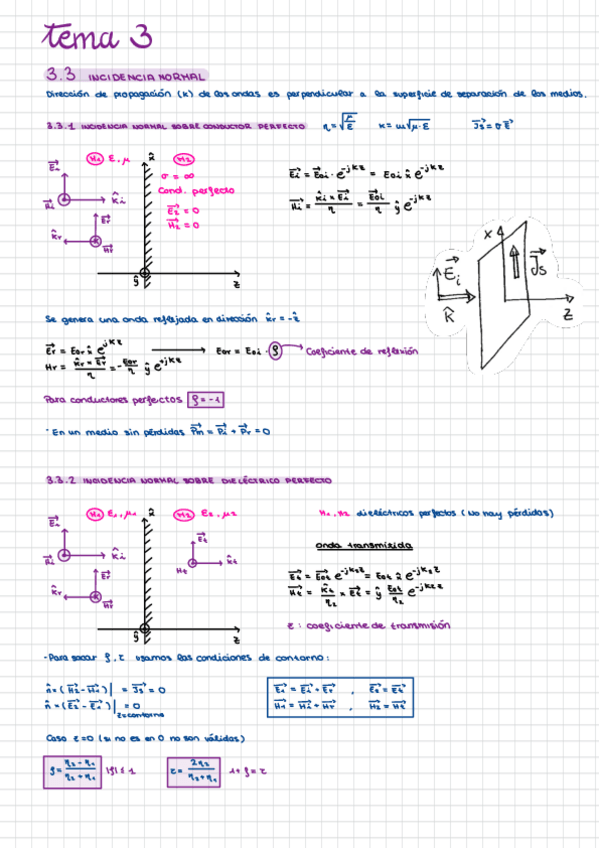 tema 3
3.3 INCIDENCIA NORMAL
Dirección de propagación (k) de las ondas es perpendicular a la superficie de separación de los medios.
3.3.1 INCIDENCIA NORMAL SOBRE CONDUCTOR PERFECTO η=√(μ/ε) k=ω√(μ·ε) J⃗s=σE⃗
E⃗i M1 ε,μ x̂ M2
σ = ∞
Cond. perfecto
H⃗i k̂i
E⃗2 = 0
H⃗2 = 0
E⃗r
k̂r H⃗r
ŷ z
E⃗i = E⃗oi · e^-jkz = Eoi x̂ e^-jkz
H⃗i = (k̂i × E⃗i)/η = (Eoi/η) ŷ e^-jkz
x E⃗i J⃗s
k̂ z
Se genera una onda reflejada en dirección k̂r = -ẑ
E⃗r = Eor x̂ e^jkz → Eor = Eoi · ρ → Coeficiente de reflexión
Hr = (k̂r × E⃗r)/η = -(Eor/η) ŷ e^+jkz
Para conductores perfectos ρ = -1
· En un medio sin pérdidas P⃗m = P⃗i + P⃗r = 0
3.3.2 INCIDENCIA NORMAL SOBRE DIELÉCTRICO PERFECTO
E⃗i M1 ε1,μ1 x̂ M2 ε2,μ2
M1, M2 dieléctricos perfectos (No hay pérdidas)
H⃗i k̂i E⃗t
Ht k̂t
E⃗r
k̂r H⃗r
ŷ z
onda transmitida
E⃗t = E⃗ot e^-jk2z = Eot x̂ e^-jk2z
H⃗t = (k̂t/η2) × E⃗t = ŷ (Eot/η2) e^-jk2z
τ : coeficiente de transmisión
· Para sacar ρ, τ usamos las condiciones de contorno:
n̂ × (H⃗2 - H⃗1)| = J⃗s = 0
n̂ × (E⃗2 - E⃗1)| = 0
z=contorno
E⃗1 = E⃗i + E⃗r , E⃗2 = E⃗t
H⃗1 = H⃗i + H⃗r , H⃗2 = H⃗t
Caso z=0 (si no es en 0 no son válidos)
ρ = (η2 - η1)/(η2 + η1) |ρ| ≤ 1 τ = 2η2/(η2 + η1) 1 + ρ = τ